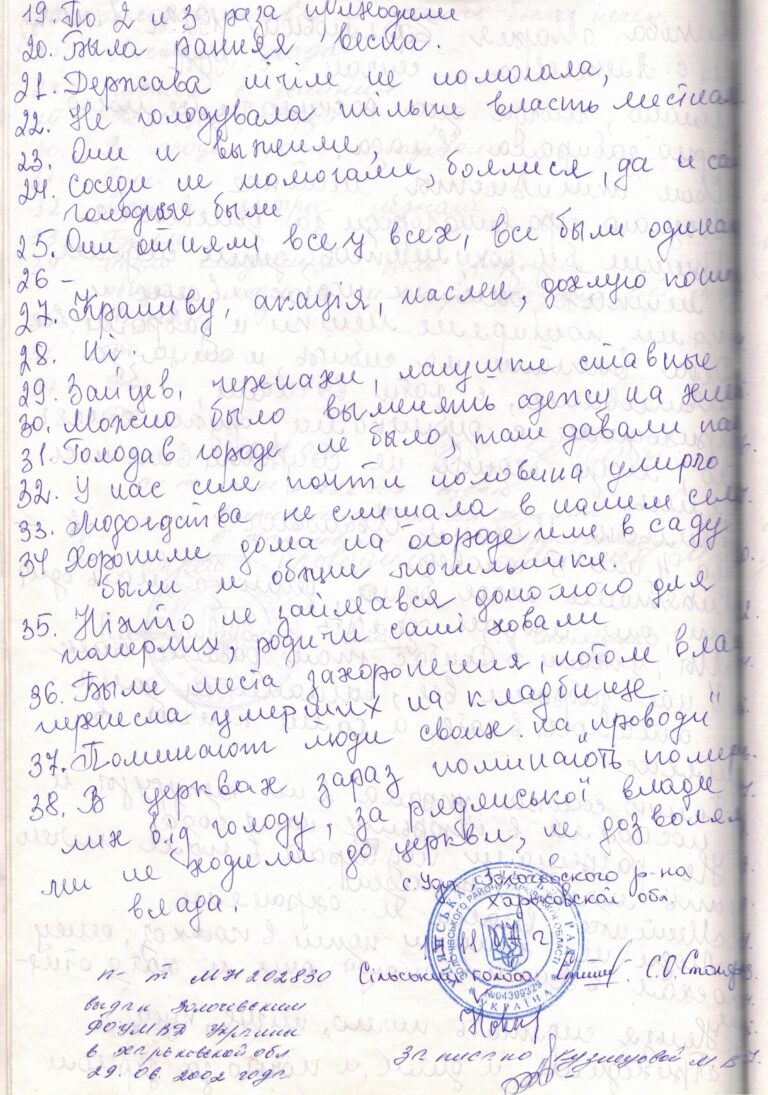 19. По 2 и 3 раза приходили
20. Была ранняя весна.
21. Держава нічім не помогала,
22. Не голодувала тільки власть местная
23. Они и выжили,
24. Соседи не помогали, боялися, да и са
голодные были
25. Они отняли все у всех, все были одинак
26 -
27. Крапиву, акація, паслен, дохлую кош
28. Ні.
29. Зайцев, черепахи, лапушки ставные
30. Можно было выменять одежу на хлеб
31. Голода в городе не было, там давали па
32. У нас селе почти половина умирло
33. Людоедства не слишала в нашим селе
34. Хоронили дома на огороде или в саду
были и общие могильники.
35. Ніхто не займався допомого для
памерлих, родичи самі ховали
36. Были места захоронения, потом влас
перенесла умерших на кладбище.
37. Поминают люди своих на "проводи"
38. В церквах зараз поминають помер
лих від голоду, за радянської влади
ми не ходили до церкви, не дозволял
влада.
с. Уды, Золочевского р-на
Харьковской обл.
11 07 г
п-т МН 202830 Сільський голова С.О.
выдан Золочевским
РОУМВД Украины
в Харьковской обл
29. 06. 2002 года
Записано Кузнецовой М. В
ЗОЛОЧІВСЬКОГО РАЙОНУ ХАРКІВСЬКОЇ ОБЛАСТІ
№04396328
УКРАЇНА